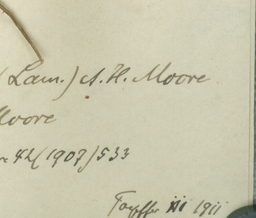 (Lam.) A. H. Moore
Moore
42 (1907) 533
III 1911